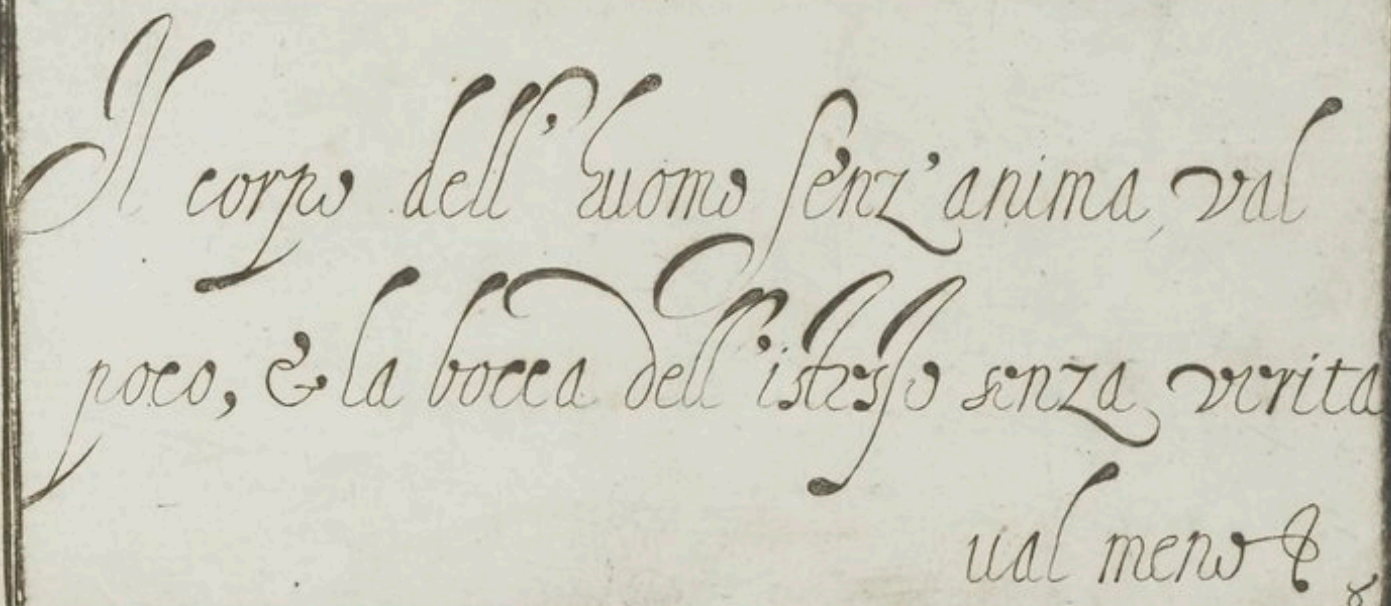 Il corpo dell'huomo senz'anima val
poco, & la bocca dell'istesso senza verita
ual meno &